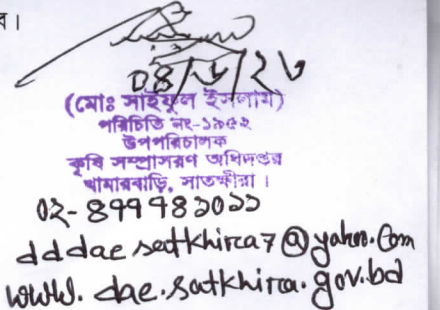 ব।
০৪/৬/২৩
(মোঃ সাইফুল ইসলাম)
পরিচিতি নং-১৯৫২
উপপরিচালক
কৃষি সম্প্রসারণ অধিদপ্তর
খামারবাড়ি, সাতক্ষীরা।
০২-৪৭৭৭৪১০১১
dddaesatkhira7@yahoo.com
www.dae.satkhira.gov.bd